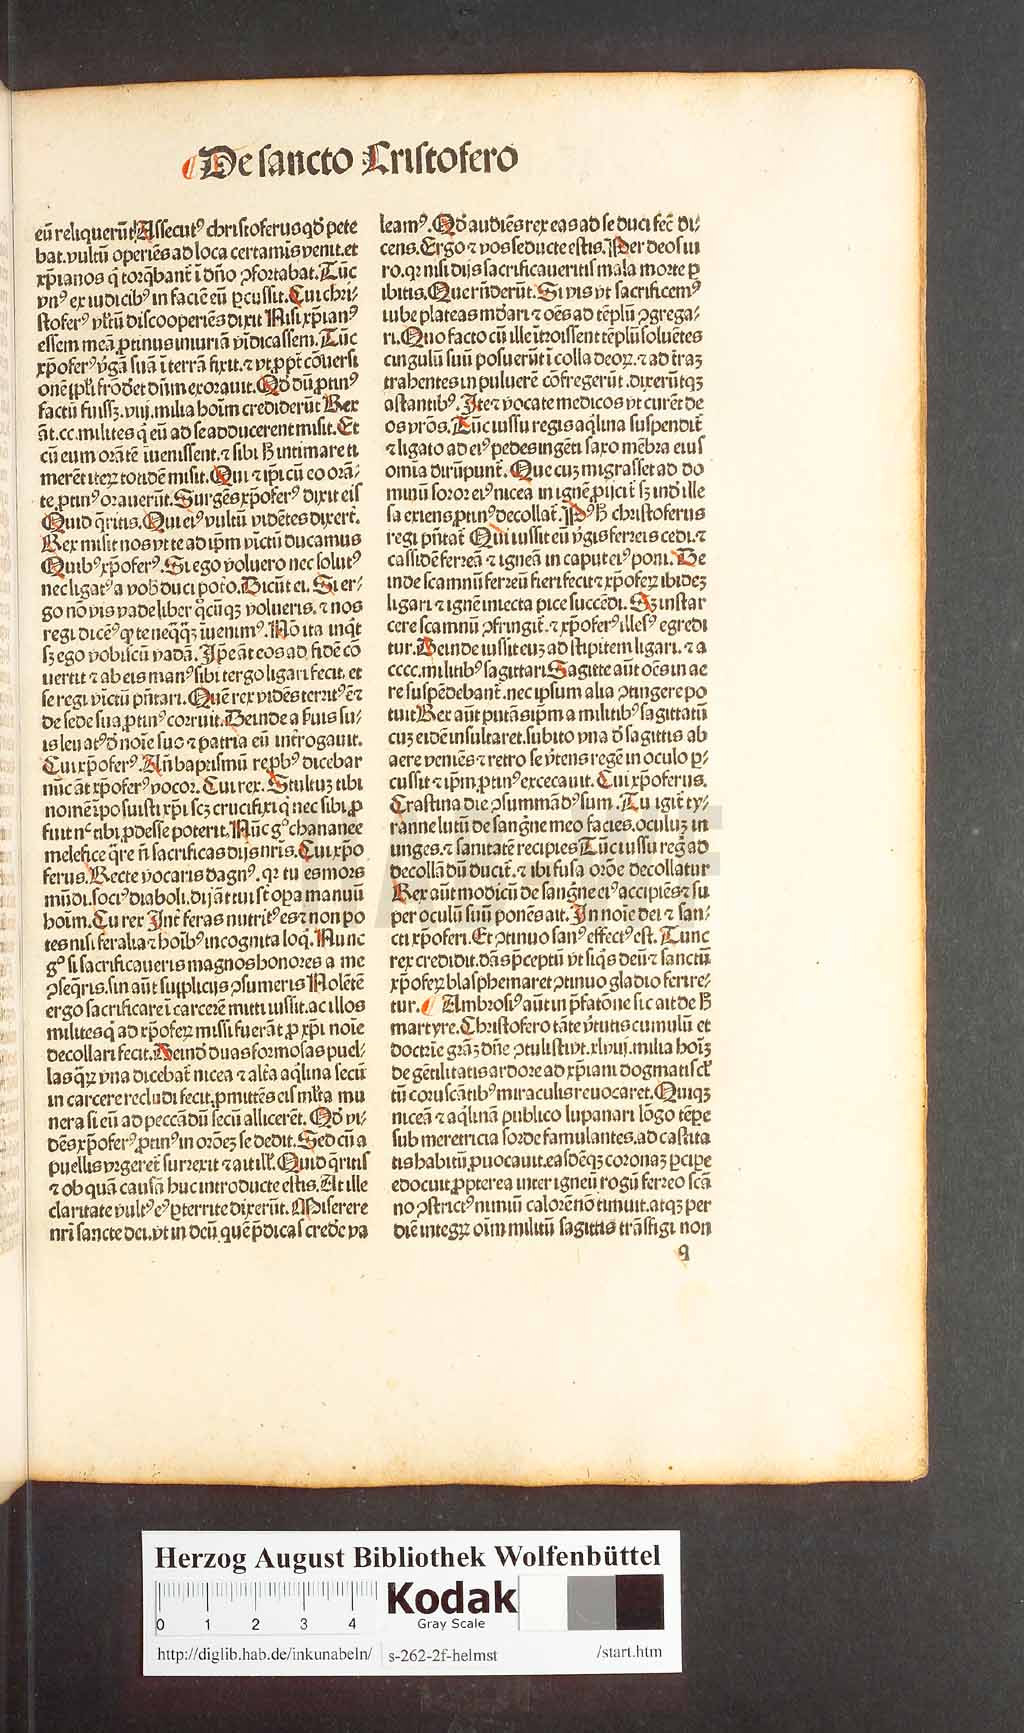 De sancto Cristofero
eū reliquerūt Assecutꝰ christoferus qd̄ pete
bat. vultū operiēs ad loca certamīs venit. et
xp̄ianos q̇ torq̄bant̄ ī dn̄o ꝯfortabat. Tūc
vnꝰ ex iudicibꝰ in faciē eū ꝑcussit. Cui chri⸗
stoferꝰ vl̓tū discooperiēs dixit Nisi xp̄ianꝰ
essem meā ꝓtinus iniuriā vīdicassem. Tūc
xp̄oferꝰ v̓gā suā ī terrā fixit. ⁊ vt ꝓpt̄ cōuersi
onē ipl̓i frōdet dn̄m exorauit. Qd̓ dū ꝓtinꝰ
factū fuissꝫ. viij. milia hoīm crediderūt Rex
āt. cc. milites q̇ eū ad se adducerent misit. Et
cū eum orātē īuenissent. ⁊ sibi ꝧ intimare ti
merēt iteꝝ totidē misit. Qui ⁊ ip̄i cū eo orā⸗
te ꝓtinꝰ orauerūt. Surgēs xp̄oferꝰ dixit eis
Quid q̄ritis. Qui eiꝰ vultū vidētes dixert̄.
Rex misit nos vt te ad ip̄m vīctū ducamus
Quibꝰ xp̄oferꝰ. Si ego voluero nec solutꝰ
nec ligatꝰ a vob̓ duci poto. Dicūt ei. Si er⸗
go nō vis vade liber q̊cūqꝫ volueris. ⁊ nos
regi dicēꝰ ꝙ te neq̄q̄ꝫ īuenimꝰ. Nō ita inq̇t
sꝫ ego vobiscū vadā. Ip̄e āt eos ad fidē cō
uertit ⁊ ab eis manꝰ sibi tergo ligari fecit. et
se regi vīctū pn̄tari. Quē rex vidēs territꝰ ē ⁊
de sede sua ꝓtinꝰ corruit. Deinde a ẜuis su⸗
is leuatꝰ d̓ noīe suo ⁊ patria eū int̓rogauit.
Cui xp̄oferꝰ. An̄ baptismū rep̄bꝰ dicebar
nūc āt xp̄oferꝰ vocor. Cui rex. Stultuꝫ tibi
nomē īposuisti xp̄i scꝫ crucifixi q̇ nec sibi ꝓ
fuit nͨ tibi ꝓdesse poterit. Nūc gͦ chananee
melefice q̄re n̄ sacrificas dijs nr̄is. Cui xp̄o
ferus. Recte vocaris dagnꝰ. qꝛ tu es mors
mūdi. sociꝰ diaboli. dij āt tui st̄ oꝑa manuū
hoīm. Cui rex Int̄ feras nutritꝰ es ⁊ non po
tes nisi feralia ⁊ hoībꝰ incognita loq̇. Nunc
gͦ si sacrificaueris magnos honores a me
ꝯseq̄ris. sin aūt suꝓplicijs ꝯsumeris Nolētē
ergo sacrificare ī carcerē mitti iussit. ac illos
milites q̇ ad xp̄oferꝝ missi fuerāt ꝓ xp̄i noīe
decollari fecit. Deind̓ duas formosas puel⸗
las q̄ꝝ vna dicebat̄ nicea ⁊ alt̓a aq̇lina secū
in carcere recludi fecit. ꝓmittēs eis ml̓ta mu
nera si eū ad peccādū secū allicerēt. Qd̓ vi⸗
dēs xp̄oferꝰ ꝓtinꝰ in orōeꝫ se dedit. Sed cū a
puellis vrgeret̄ surrexit ⁊ ait ill̓. Quid q̄ritis
⁊ ob quā causā huc introducte estis. At ille
claritate vultꝰ eꝰ ꝑterrite dixerūt. Miserere
nr̄i sancte dei. vt in deū quē p̄dicas crede̓ va
leamꝰ. Qd̓ audiēs rex eas ad se duci fec̄ di⸗
cens. Ergo ⁊ vos seducte estis. Per deos iu
ro. qꝛ nisi dijs sacrificaueritis mala morte ꝑ
ibitis. Que rn̄derūt. Si vis vt sacrificemꝰ
iube plateas mūdari ⁊ oēs ad tēplū ꝯgrega⸗
ri. Quo facto cū ille ītroissent tēplū soluētes
cingulū suū posuerūt ī colla deoꝝ. ⁊ ad t̓raꝫ
trahentes in puluerē cōfregerūt. dixerūtqꝫ
astantibꝰ. Ite ⁊ vocate medicos vt curēt de
os vr̄os. Tūc iussu regis aq̇lina suspendit̄
⁊ ligato ad eiꝰ pedes ingēti saxo mēbra eius
omīa dirūpunt̄. Que cuꝫ migrasset ad do
minū soror eiꝰ nicea in ignē ꝓijcit̄ sꝫ ind̓ ille
sa exiens ꝓtinꝰ decollat̄. Pꝰ ꝧ christoferus
regi pn̄tat̄ Qui iussit eū v̓gis ferreis cedi. ⁊
cassidē ferreā ⁊ igneā in caput eiꝰ poni. De
inde scamnū ferreū fieri fecit ⁊ xp̄oferꝝ ibideꝫ
ligari ⁊ ignē iniecta pice succēdi. Sꝫ instar
cere scamnū ꝯfringit̄. ⁊ xp̄oferꝰ illesꝰ egredi
tur. Deinde iussit euꝫ ad stipitem ligari. ⁊ a
cccc. militibꝰ sagittari Sagitte aūt oēs in ae
re suspēdebant̄. nec ipsum aliq̄ ꝯtingere po
tuit Rex aūt putās ip̄m a militibꝰ sagittatū
cuꝫ eidē insultaret. subito vna d̓ sagittis ab
aere veniēs ⁊ retro se v̓tens regē in oculo ꝑ⸗
cussit ⁊ ip̄m ꝓtinꝰ excecauit. Cui xp̄oferus.
Crastina die ꝯsummādꝰ sum. Tu igit̄ ty⸗
ranne lutū de sang̓ne meo facies. oculuꝫ in
unges. ⁊ sanitatē recipies Tūc iussu reg̓ ad
decollādū ducit̄. ⁊ ibi fusa orōe decollatur
Rex aūt modicū de sang̓ne eiꝰ accipiēs ⁊ su
per oculū suū ponēs ait. In noīe dei ⁊ san⸗
cti xp̄oferi. Et ꝯtinuo sanꝰ effectꝰ est. Tunc
rex credidit. dās p̄ceptū vt siqͥs deū ⁊ sanctū
xp̄oferꝝ blasphemaret ꝯtinuo gladio ferire⸗
tur. Ambrosiꝰ aūt in p̄fatōne sic ait de ꝧ
martyre. Christofero tāte v̓tutis cumulū et
doctrīe gr̄aꝫ dn̄e ꝯtulisti vt. xlviij. milia hoīꝫ
de gētilitatis ardore ad xp̄iani dogmatis cl̓
tū coruscātibꝰ miraculis reuocaret. Quiqꝫ
niceā ⁊ aq̇linā publico lupanari lōgo tēꝑe
sub meretricia sorde famulantes. ad castita
tis habitū ꝓuocauit. easdēqꝫ coronaꝫ ꝑciꝑe
edocuit ꝓpterea inter igneū rogū ferreo scā
no ꝯstrictꝰ nimiū calorē nō timuit. atqꝫ per
diē integꝝ oīm militū sagittis trāsfigi non
q
Herzog August Bibliothek Wolfenbüttel
0 1 2 3 4
Kodak
Gray Scale
http://diglib.hab.de/inkunabeln/ s-262-2f-helmst /start.htm